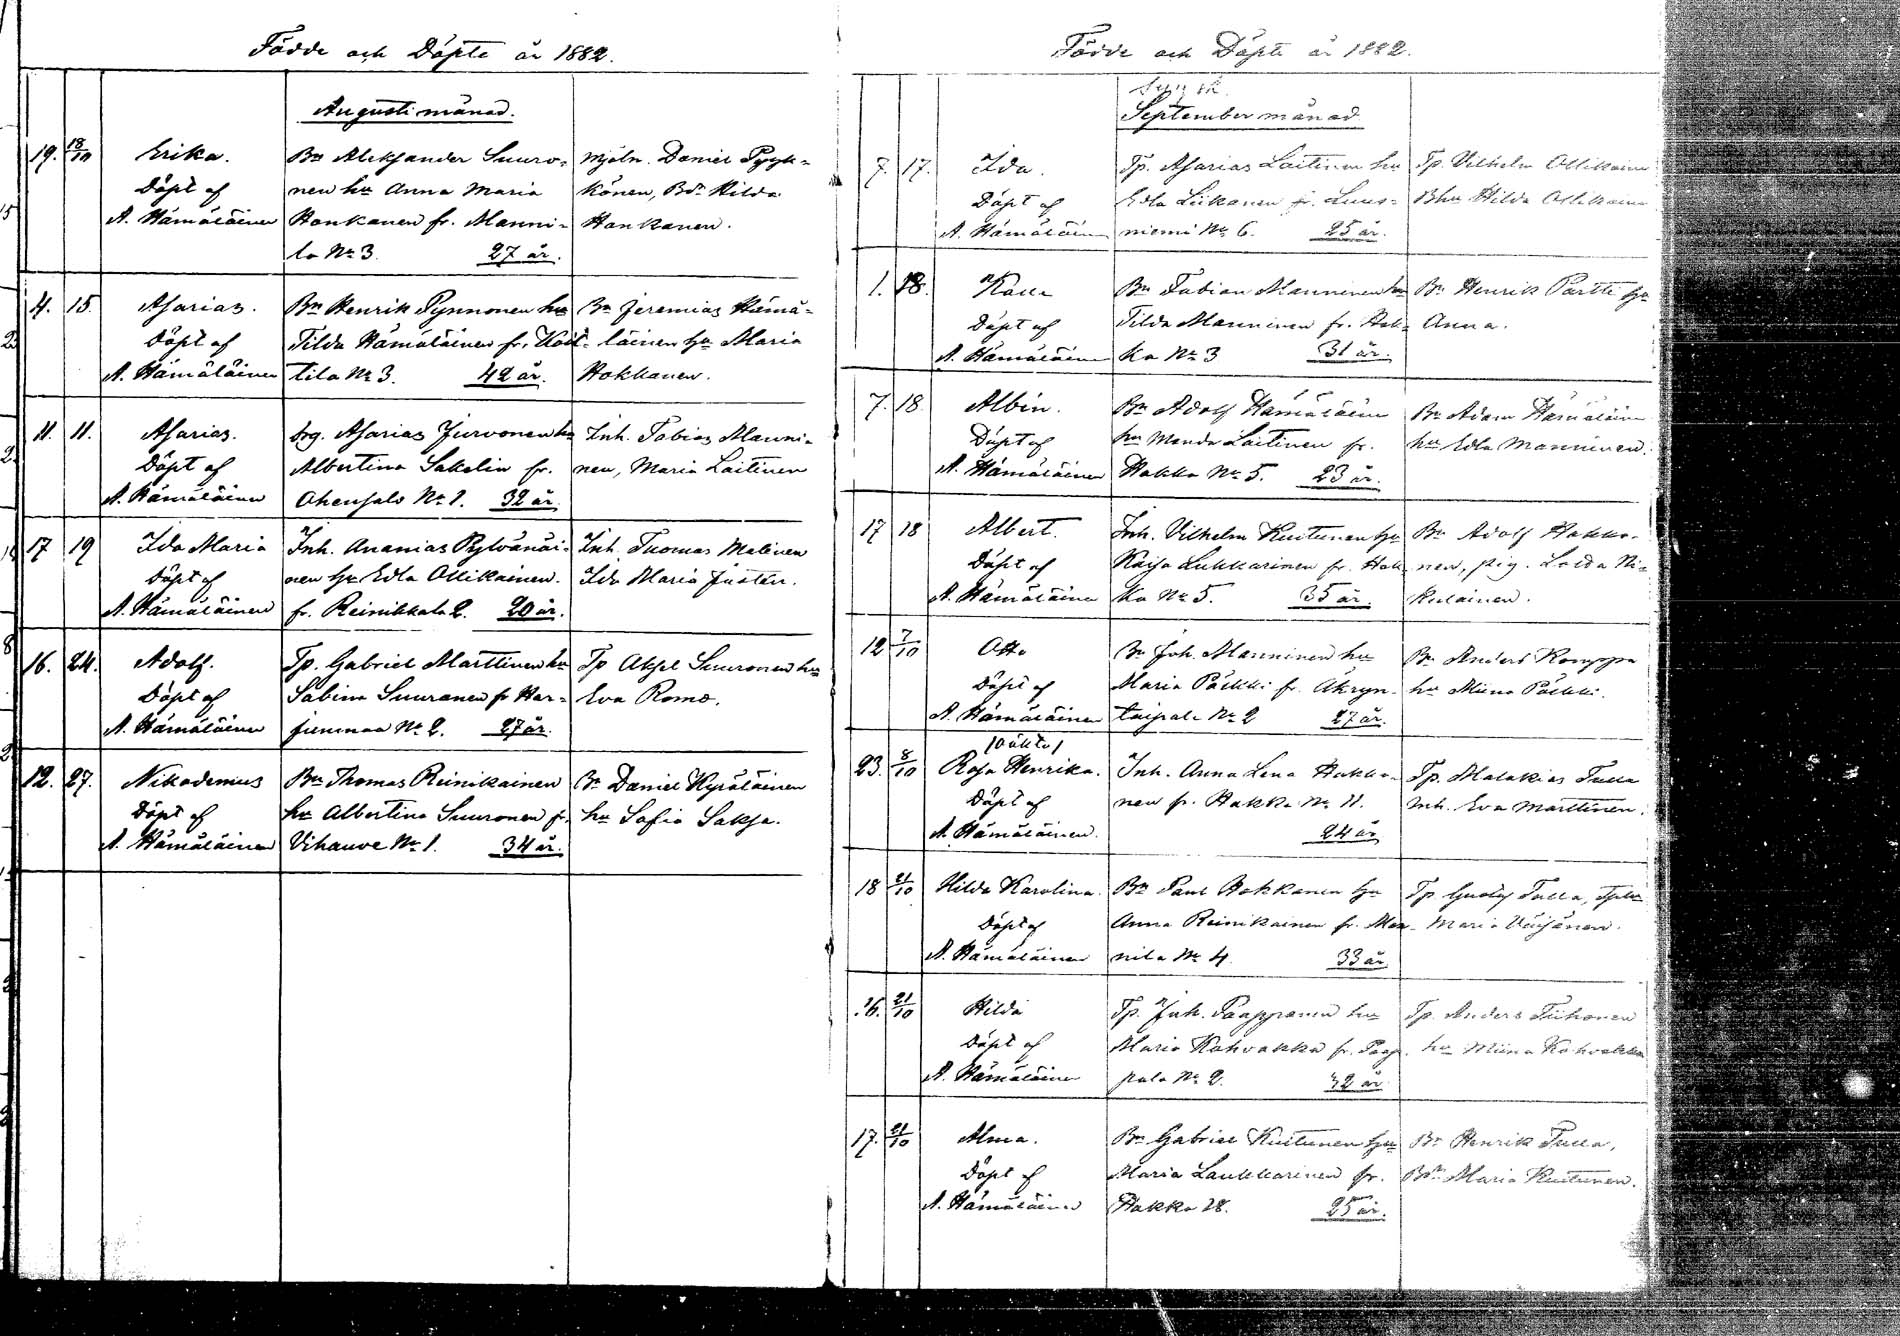 Födde och Döpte år 1882.
Augusti månad.
19. 18/10 Erika. Bn Aleksander Suuro- Mjöln. Daniel Pyyk-
Döpt af nen hu Anna Maria könen, Bdr Hilda
A. Hämäläinen Honkanen fr. Manni- Honkanen.
la No 3. 27 år.
4. 15. Asarias. Bn Henrik Pynnonen hu Bn Jeremias Hämä-
Döpt af Tilda Hämäläinen fr. läinen hu Maria
A. Hämäläinen tila No 3. 42 år. Hokkanen.
11. 11. Asarias. Asarias Jurvonen hu Inh. Tobias Manni-
Döpt af Albertina Sakelin fr. nen, Maria Laitinen
A. Hämäläinen Ahensalo No 1. 32 år.
17 19 Ida Maria Inh. Ananias Pylvänäi- Inh. Thomas Malinen
Döpt af nen hu Edla Ollikainen. Ida Maria
A. Hämäläinen fr. Reinikkala 2. 20 år.
16. 24. Adolf. Tp. Gabriel Marttinen hu Tp Aksel Suuronen hu
Döpt af Sabina Suuranen fr Har- Eva Romo.
A. Hämäläinen junmaa No 2. 27 år.
12. 27. Nikodemus Bn Thomas Reinikainen Bn Daniel Kyräläinen
Döpt af hu Albertina Suuronen fr. hu Sofia Saksa.
A. Hämäläinen Vihavve No 1. 34 år.
Födde och Döpte år 1882.
September månad.
7. 17. Ida. Tp. Asarias Laitinen hu Tp. Vilhelm Ollikainen
Döpt af Edla Liikanen fr. Luus- Bhu Hilda Ollikainen
A. Hämäläinen niemi No 6. 25 år.
1. 18. Kalle Bn Fabian Manninen hu Bn Henrik Partti hu
Döpt af Tilda Manninen fr. Hak- Anna.
A. Hämäläinen ka No 3 31 år.
7. 18. Albin. Bn Adolf Hämäläinen Bn Adam Hämäläinen
Döpt af hu Manda Laitinen fr. hu Edla Manninen.
A. Hämäläinen Hakka No 5. 23 år.
17 18 Albert. Inh. Vilhelm Kuitunen hu Bn Adolf Hakka-
Döpt af Kaisa Lukkarinen fr. Hak- nen, pig. Loda Ni-
A. Hämäläinen ka No 5. 35 år. kulainen.
12 7/10 Otto Bn Joh. Manninen hu Bn Anders Komppa
Döpt af Maria Päkki fr. Äkryn- hu Miina Päkki.
A. Hämäläinen taipale No 2 27 år.
/Oäkta/
23. 8/10 Rosa Henrika. Inh. Anna Lena Hakka- Tp. Malakias Tulla
Döpt af nen fr. Hakka No 11. Inh. Eva Marttinen.
A. Hämäläinen. 24 år
18 21/10 Hilda Karolina. Bn Paul Hokkanen hu Tp. Gustaf Tulla,
Döpt af Anna Reinikainen fr. Man- Maria Väisänen.
A. Hämäläinen nila No 4. 33 år
16. 21/10 Hilda Tp. Joh. Paappanen hu Tp. Anders Tiihonen
Döpt af Maria Kohvakka fr. Paap- hu Miina Kohvakka
A. Hämäläinen pala No 2. 32 år.
17. 21/10 Alma. Bn Gabriel Kuitunen hu Bn Henrik Tulla,
Döpt af Maria Laukkarinen fr. Bdr Maria Kuitunen.
A. Hämäläinen Hakka 28. 25 år.